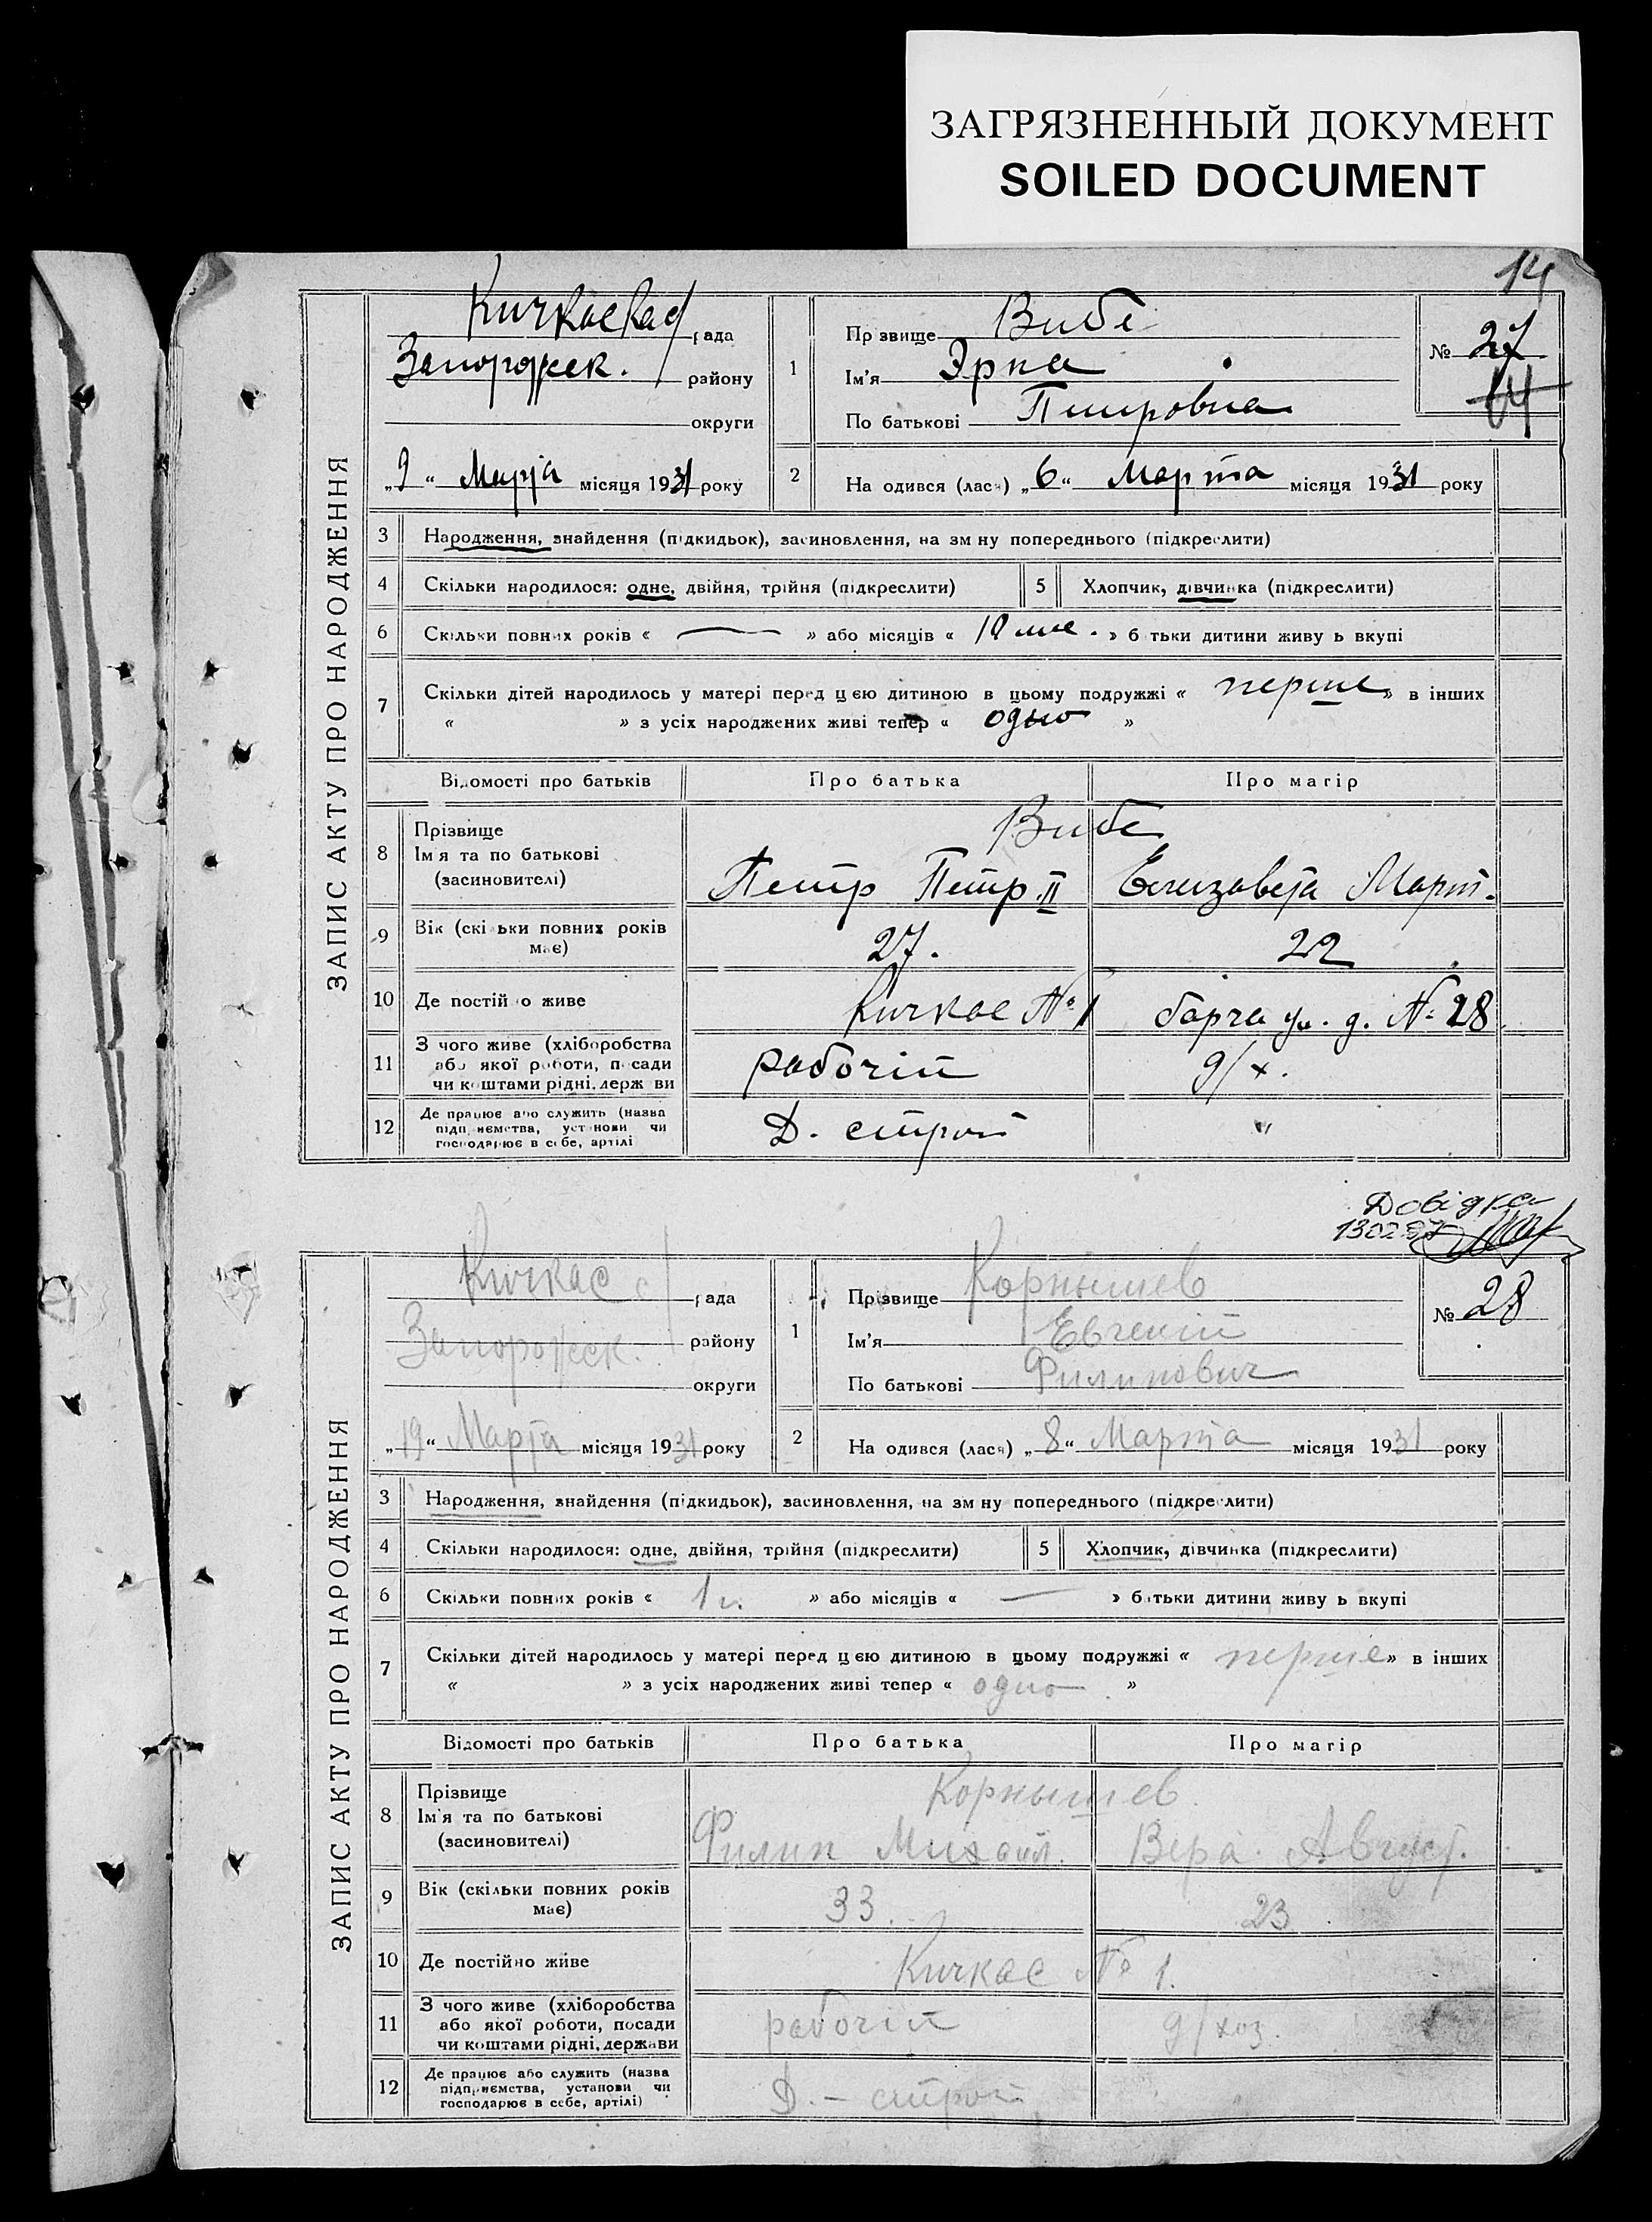 ЗАГРЯЗНЕННЫЙ ДОКУМЕНТ
SOILED DOCUMENT
14
ЗАПИС АКТУ ПРО НАРОДЖЕННЯ
рада
Запорожск. району
округи
„9“ Марта місяця 1931 року
1 Пр звище Вибе
Ім'я Эрна
По батькові Петровна
№ 27
14
2 На одився (лася) „6“ Марта місяця 1931 року
3 Народження, знайдення (підкидьок), засиновлення, на зм ну попереднього (підкреслити)
4 Скільки народилося: одне, двійня, трійня (підкреслити) 5 Хлопчик, дівчинка (підкреслити)
6 Скільки повних років « — » або місяців « 10 мес. » б тьки дитини живу ь вкупі
7 Скільки дітей народилось у матері перед цією дитиною в цьому подружжі « перше » в інших
« » з усіх народжених живі тепер « одно »
Відомості про батьків Про батька Про матір
8 Прізвище
Ім'я та по батькові
(засиновителі)
Вибе
Петр Петр. II Елизавета Март.
9 Вік (скі ьки повних років має) 27. 22
10 Де постій о живе Кичкас № 1 барча ул. д. № 28
11 З чого живе (хліборобства
або якої роботи, посади
чи коштами рідні, держ ви
рабочій д/х.
12 Де працює або служить (назва
підприємства, установи чи
господарює в себе, артілі
Д. строй "
Довідка
ЗАПИС АКТУ ПРО НАРОДЖЕННЯ
Кичкас с/ рада
Запорожск. району
округи
„19“ Марта місяця 1931 року
1 Прізвище Корнышев
Ім'я Евгений
По батькові Филипович
№ 28
2 На одився (лася) „8“ Марта місяця 1931 року
3 Народження, знайдення (підкидьок), засиновлення, на зм ну попереднього (підкре лити)
4 Скільки народилося: одне, двійня, трійня (підкреслити) 5 Хлопчик, дівчинка (підкреслити)
6 Скільки повних років « 1 г. » або місяців « — » батьки дитини живу ь вкупі
7 Скільки дітей народилось у матері перед цією дитиною в цьому подружжі « перше » в інших
« » з усіх народжених живі тепер « одно »
Відомості про батьків Про батька Про матір
8 Прізвище
Ім'я та по батькові
(засиновителі)
Корнышев.
Филип Михайл. Вера Август.
9 Вік (скільки повних років має) 33. 23
10 Де постійно живе Кичкас № 1.
11 З чого живе (хліборобства
або якої роботи, посади
чи коштами рідні, держави
рабочій д/хоз.
12 Де працює або служить (назва
підприємства, установи чи
господарює в себе, артілі)
Д. – строй